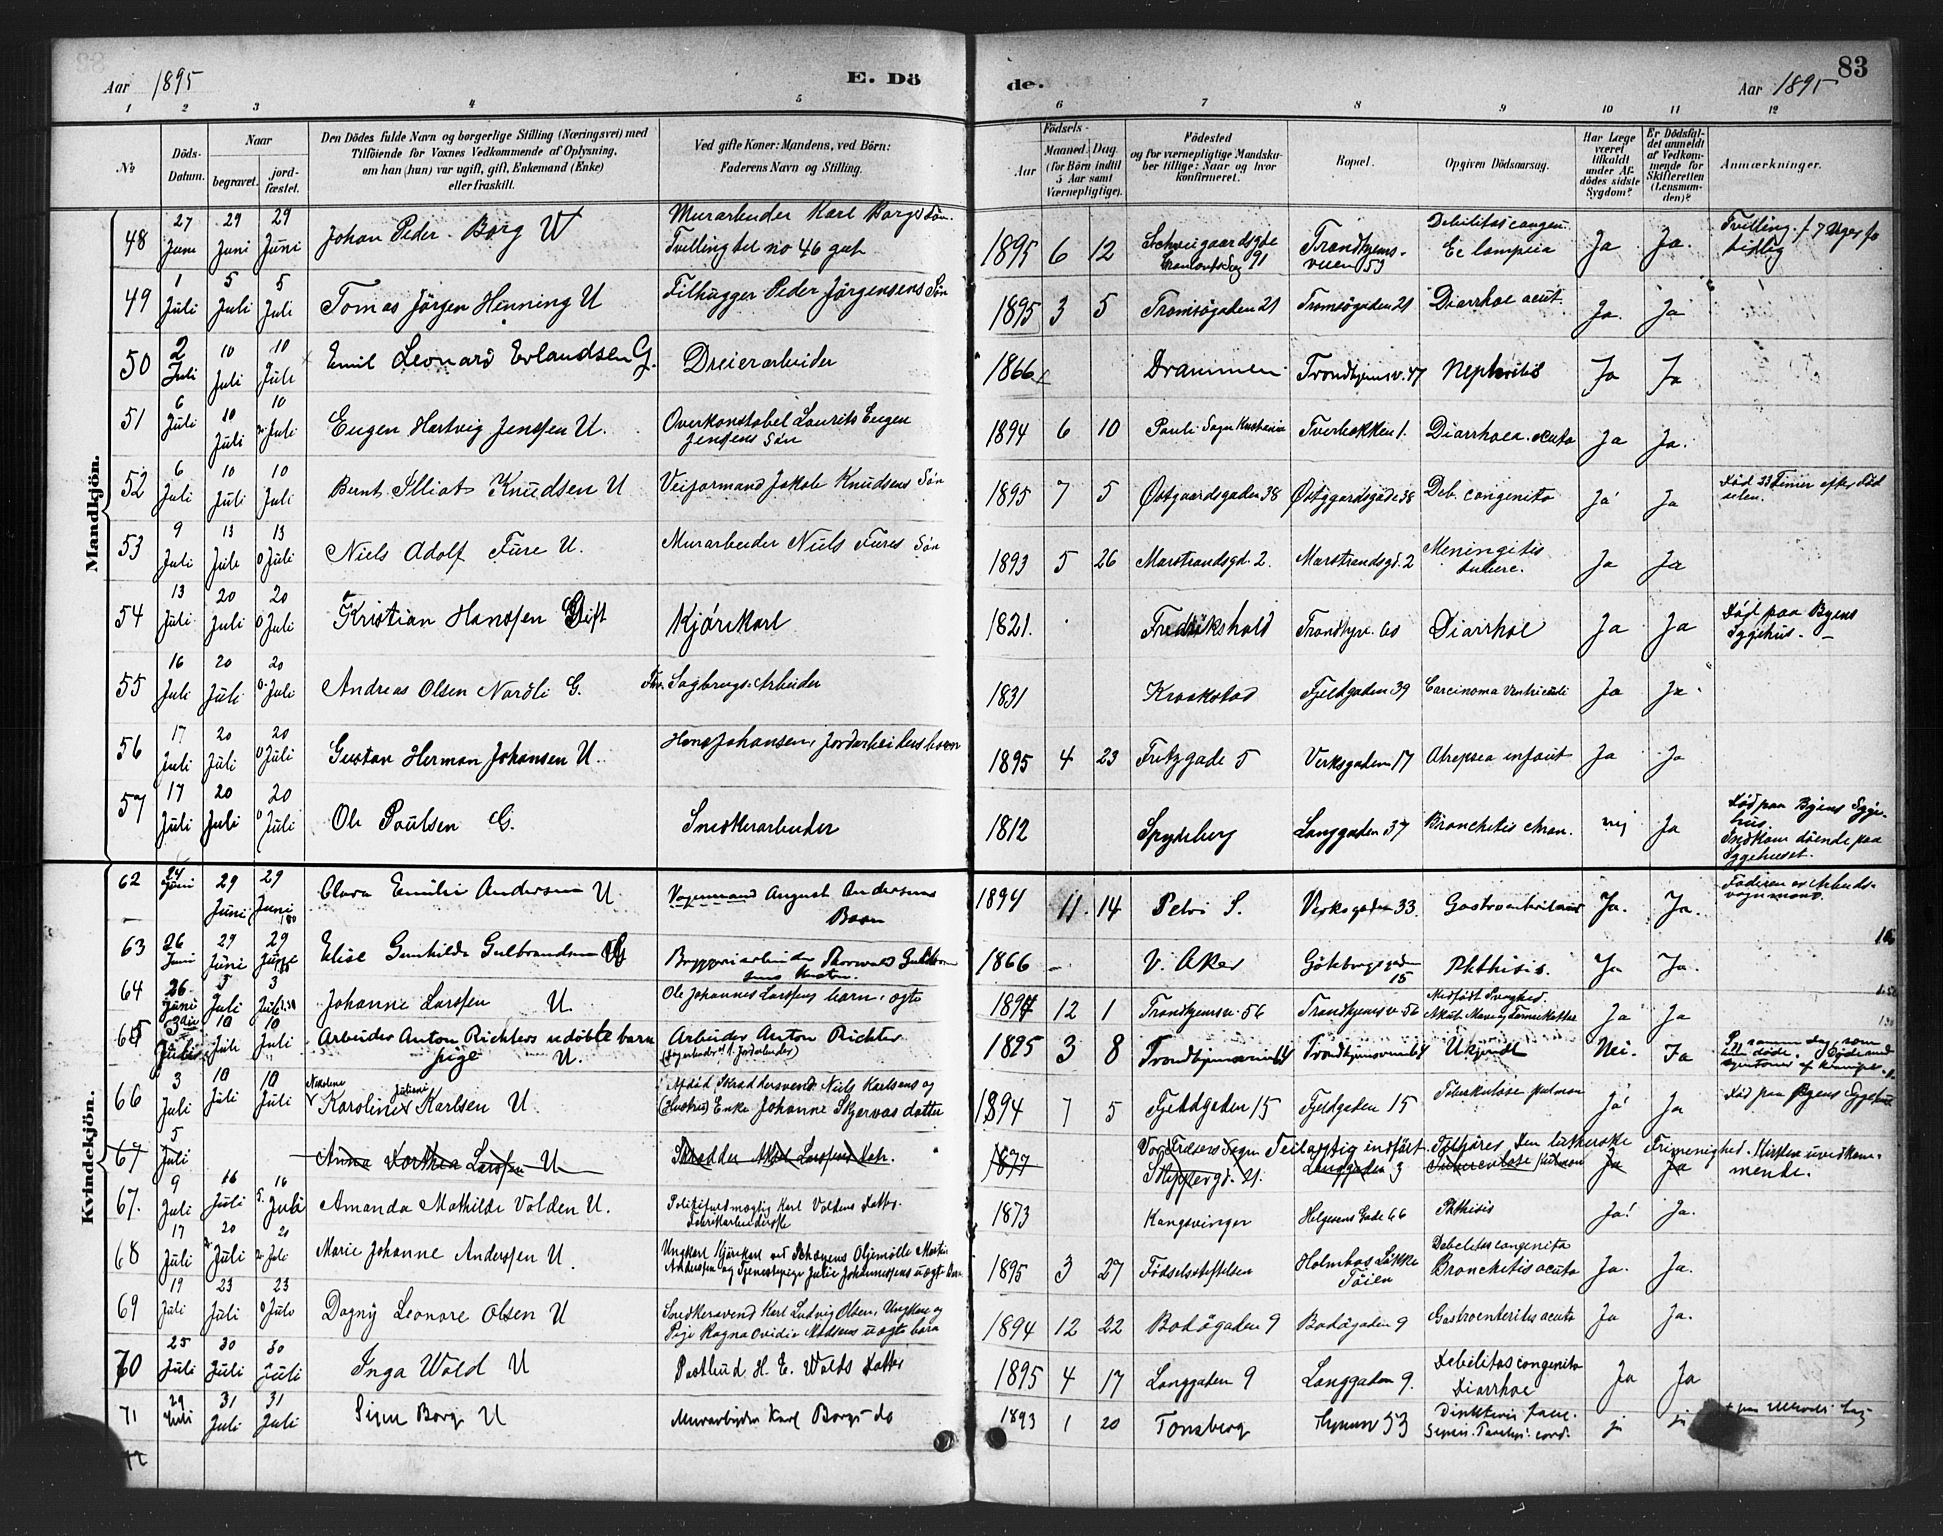 Aar 1895 E. Dö de. Aar 1895 83
1 2 3 4 5 6 7 8 9 10 11 12
No Döds-Datum. Naar begravet. jord-fæstet. Den Dödes fulde Navn og borgerlige Stilling (Næringsvei) med Tilföiende for Voxnes Vedkommende af Oplysning, om han (hun) var ugift, gift, Enkemand (Enke) eller fraskilt. Ved gifte Koner: Mandens, ved Börn: Faderens Navn og Stilling. Födsels- Aar Maaned. Dag. (for Börn indtil 5 Aar samt Værnepligtige). Födested og for værnepligtige Mandskaber tillige: Naar og hvor konfirmeret. Bopæl. Opgiven Dödsaarsag. Har Læge været tilkaldt under Afdödes sidste Sygdom? Er Dödsfaldet anmeldt af Vedkommende for Skifteretten (Lensmanden)? Anmærkninger.
Mandkjön.
48 27 Juni 29 Juni 29 Juni Johan Peder Borg U Murarbeider Karl Borgs Sön. Tvilling til no 46 gut 1895 6 12 Schweigaardsgde 91 Trondhjems-veien 53 Debilitas congen. Eclampsia Ja Ja. Tvilling. 7 Uger for tidlig
49 1 Juli 5 Juli 5 Juli Tomas Jörgen Henning U Filhugger Peder Jörgensens Sön 1895 3 5 Tromsögaden 21 Tromsögaden 21 Diarrhoe acut. Ja. Ja
50 2 Juli 10 Juli 10 Juli Emil Leonard Erlandsen G. Dreierarbeider 1866 Drammen Trondhjemsv. 47 Nephritis Ja Ja
51 6 Juli 10 Juli 10 Juli Eugen Hartvig Jenssen U. Overkonstabel Laurits Eugen Jensens Sön 1894 6 10 Pauli Sogn Kristiania Tverbakken 1. Diarrhoea acuta Ja Ja.
52 6 Juli 10 Juli 10 Juli Bernt Elliot Knudsen U Veiformand Jakob Knudsens Sön 1895 7 5 Østgaardsgaden 38 Østgaardsgade 38 Deb. congenita Ja Ja Död 23 Timer efter Födselen.
53 9 Juli 13 Juli 13 Juli Niels Adolf Fure U. Murarbeider Niels Fures Sön 1893 5 26 Marstrandsgd. 2. Marstrandsgd. 2 Meningitis tuberc. Ja Ja
54 13 Juli 20 Juli 20 Juli Kristian Hanssen Gift Kjörikarl 1821. Fredrikshald Trondhjv. 60 Diarrhoe Ja Ja Död paa Byens Sygehus.
55 16 Juli 20 Juli 20 Juli Andreas Olsen Nordli G. Fhv. Sagbrugs-Arbeider 1831 Kraakstad Fjeldgaden 39 Carcinoma ventriculi Ja Ja
56 17 Juli 20 Juli 20 Juli Gustav Herman Johansen U. Hans Johansen, Jordarbeiders barn 1895 4 23 Fritzgade 5 Verksgaden 17 Atrepsia infant Ja Ja
57 17 Juli 20 Juli 20 Juli Ole Paulsen G. Snedkerarbeider 1812 Spydeberg Langgaden 37 Bronchitis chron. nej Ja Död paa Byens Sygehus. Indkom döende paa Sygehuset.
Kvindekjön.
62 24 Juni 29 Juni 29 Juni Clara Emilie Andersen U. Vognmand August Andersens Barn 1894 11. 14 Petri S. Verksgaden 33. Gastroenteritis Ja. Ja. Faderen er Arbeids-vognmand.
63 26 Juni 29 Juni 29 Juni Elise Gunhilda Gulbrandsen G Bryggeriarbeider Thorvald Gulbransens Hustru. 1866 V. Aker Göteborggaden 15 Phthisis. Ja Ja.
64 26 Juni 3 Juli 3 Juli Johanne Larssen U. Ole Johannes Larssens barn, ægte 1894 12 1 Trondhjemsv. 56 Trondhjemsv. 56 Medfödt Svaghed. Akut Mave og Tarmkatar Ja Ja
65 3die Juli 10 Juli 10 Juli Arbeider Anton Richters udöbte barn pige U. Arbeider Anton Richter (Jordarbeider) 1895 3 8 Trondhjemsvei 64 Trondhjemsvei 64 Ukjendt Nei. Ja
66 3 Juli 10 Juli 10 Juli Nikoline Karoline Juliane Karlsen U. Afdöd Skreddersvend Niels Karlsens og (Hustru) Enke Johanne Skjervas datter 1894 7 5 Fjeldgaden 15 Fjeldgaden 15 Tuberkulose pulmon Ja Ja Död paa Byens Sygehus
67 5 Juli Anna Dorthea Larssen U Skredder Larssens Datr. 1877 Vor Frelsers Sogn Feilagtig indfört. Tilhörer Den lutherske Frimenighed. Kirken uvedkommende. Skippergd. 21. Langgaden 3 Tuberculose pulmon Ja Ja
67. 9 Juli 16 Juli 16 Juli Amanda Mathilde Volden U. Politifuldmægtig Karl Voldens Datter. Fabrikarbeiderske 1873 Kongsvinger Helgesens Gade 66 Phthisis Ja! Ja.
68 17 Juli 20 Juli 20 Juli Marie Johanne Anderssen U. Ungkarl Kjörekarl ved Schøyens Oljemölle Martin Anderssen og Tjenestepige Julie Johannessens uægte barn 1895 3 27 Födselsstiftelsen Holmboes Lökke Töien Debilitas congenita Bronchitis acuta Ja. Ja.
69 19 Juli 23 Juli 23 Juli Dagny Leonore Olsen U Snedkersvend Karl Ludvig Olsen, Ungkarl og Pige Ragna Ovidie Madsens uægte barn 1894 12 22 Bodögaden 9 Bodögaden 9 Gastroenteritis acuta Ja Ja.
70 25 Juli 30 Juli 30 Juli Inga Wold U Postbud H. E. Wolds Datter 1895 4 17 Langgaden 9 Langgaden 9. Debilitas congenita Diarrhoe Ja Ja
71 29 Juli 31 Juli 31 Juli Signe Borg U Murarbeider Karl Borgs do 1893 1 20 Tonsberg 53 ja ja
72